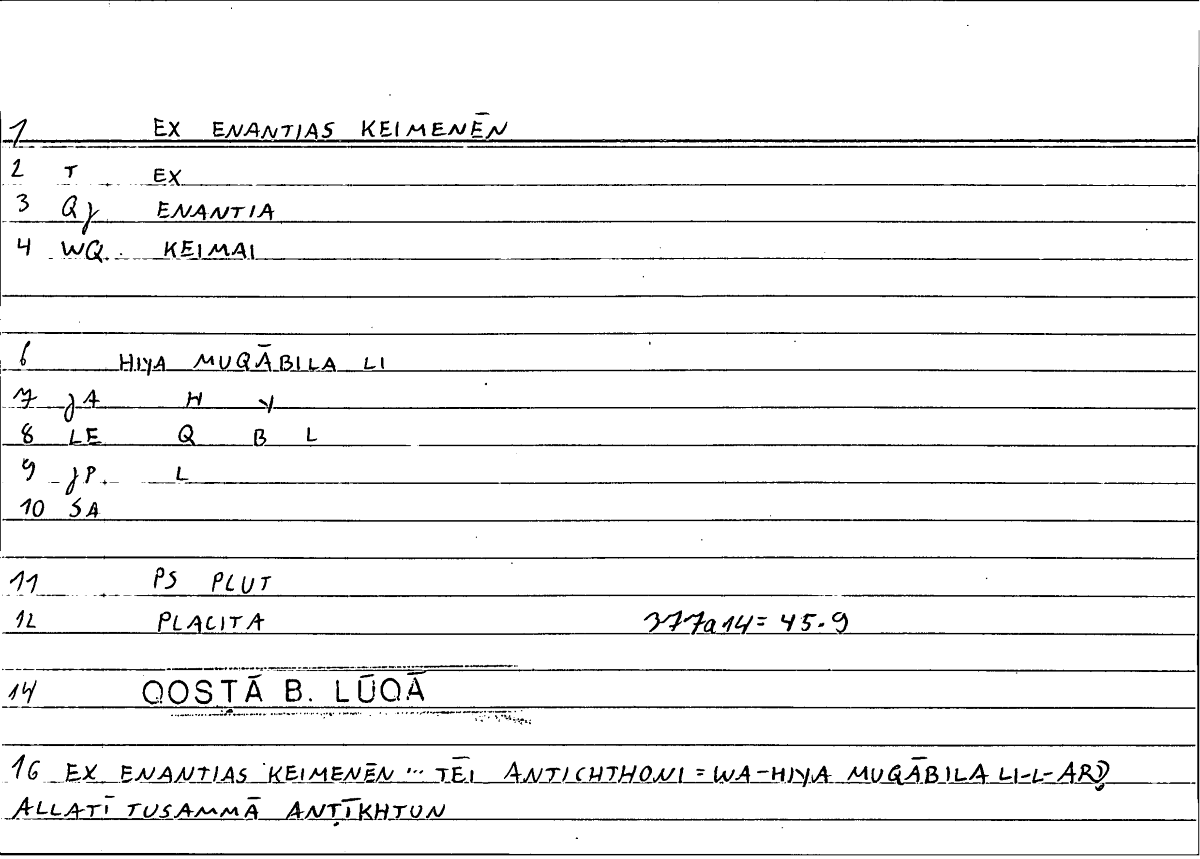 1 EX ENANTIAS KEIMENĒN
2 T EX
3 Qȷ ENANTIA
4 WQ KEIMAI
6 HIYA MUQĀBILA LI
7 ȷA H Y
8 LE Q B L
9 ȷP L
10 SA
11 PS PLUT
12 PLACITA 377a14 = 45.9
14 QOSṬĀ B. LŪQĀ
16 EX ENANTIAS KEIMENĒN ... TĒI ANTICHTHONI = WA-HIYA MUQĀBILA LI-L-ARḌ
ALLATĪ TUSAMMĀ ANṬĪKHTUN